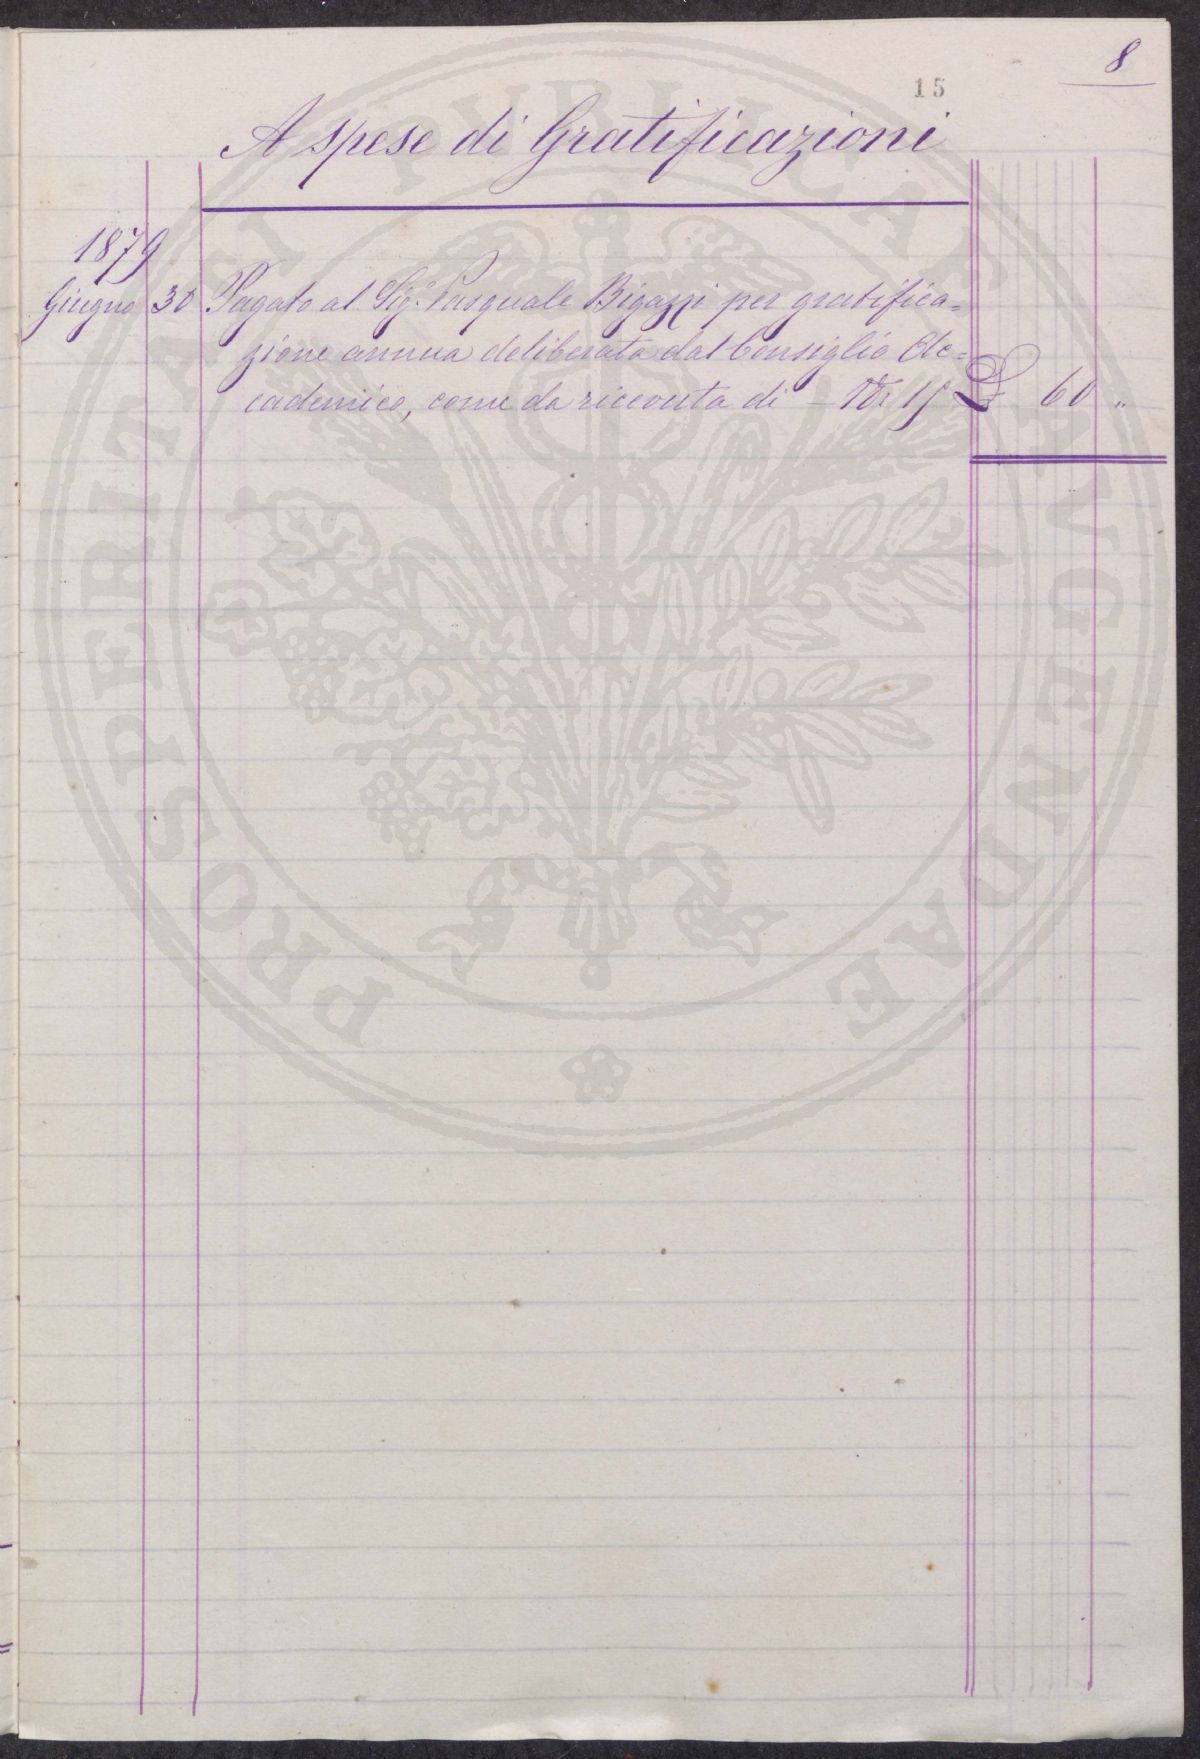 8
15
A spese di Gratificazioni
1879
Giugno 30 Pagato al Sig. Pasquale Bigazzi per gratifica=
zione annua deliberata dal Consiglio Ac=
cademico, come da ricevuta di N. 15 L 60 "
PROSPERITATI PVBLICAE AVGENDAE